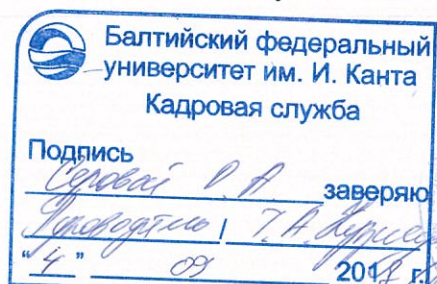 Балтийский федеральный
университет им. И. Канта
Кадровая служба
Подпись
Серовой О А заверяю
Руководитель / Т.А.
"4" 09 2018 г.